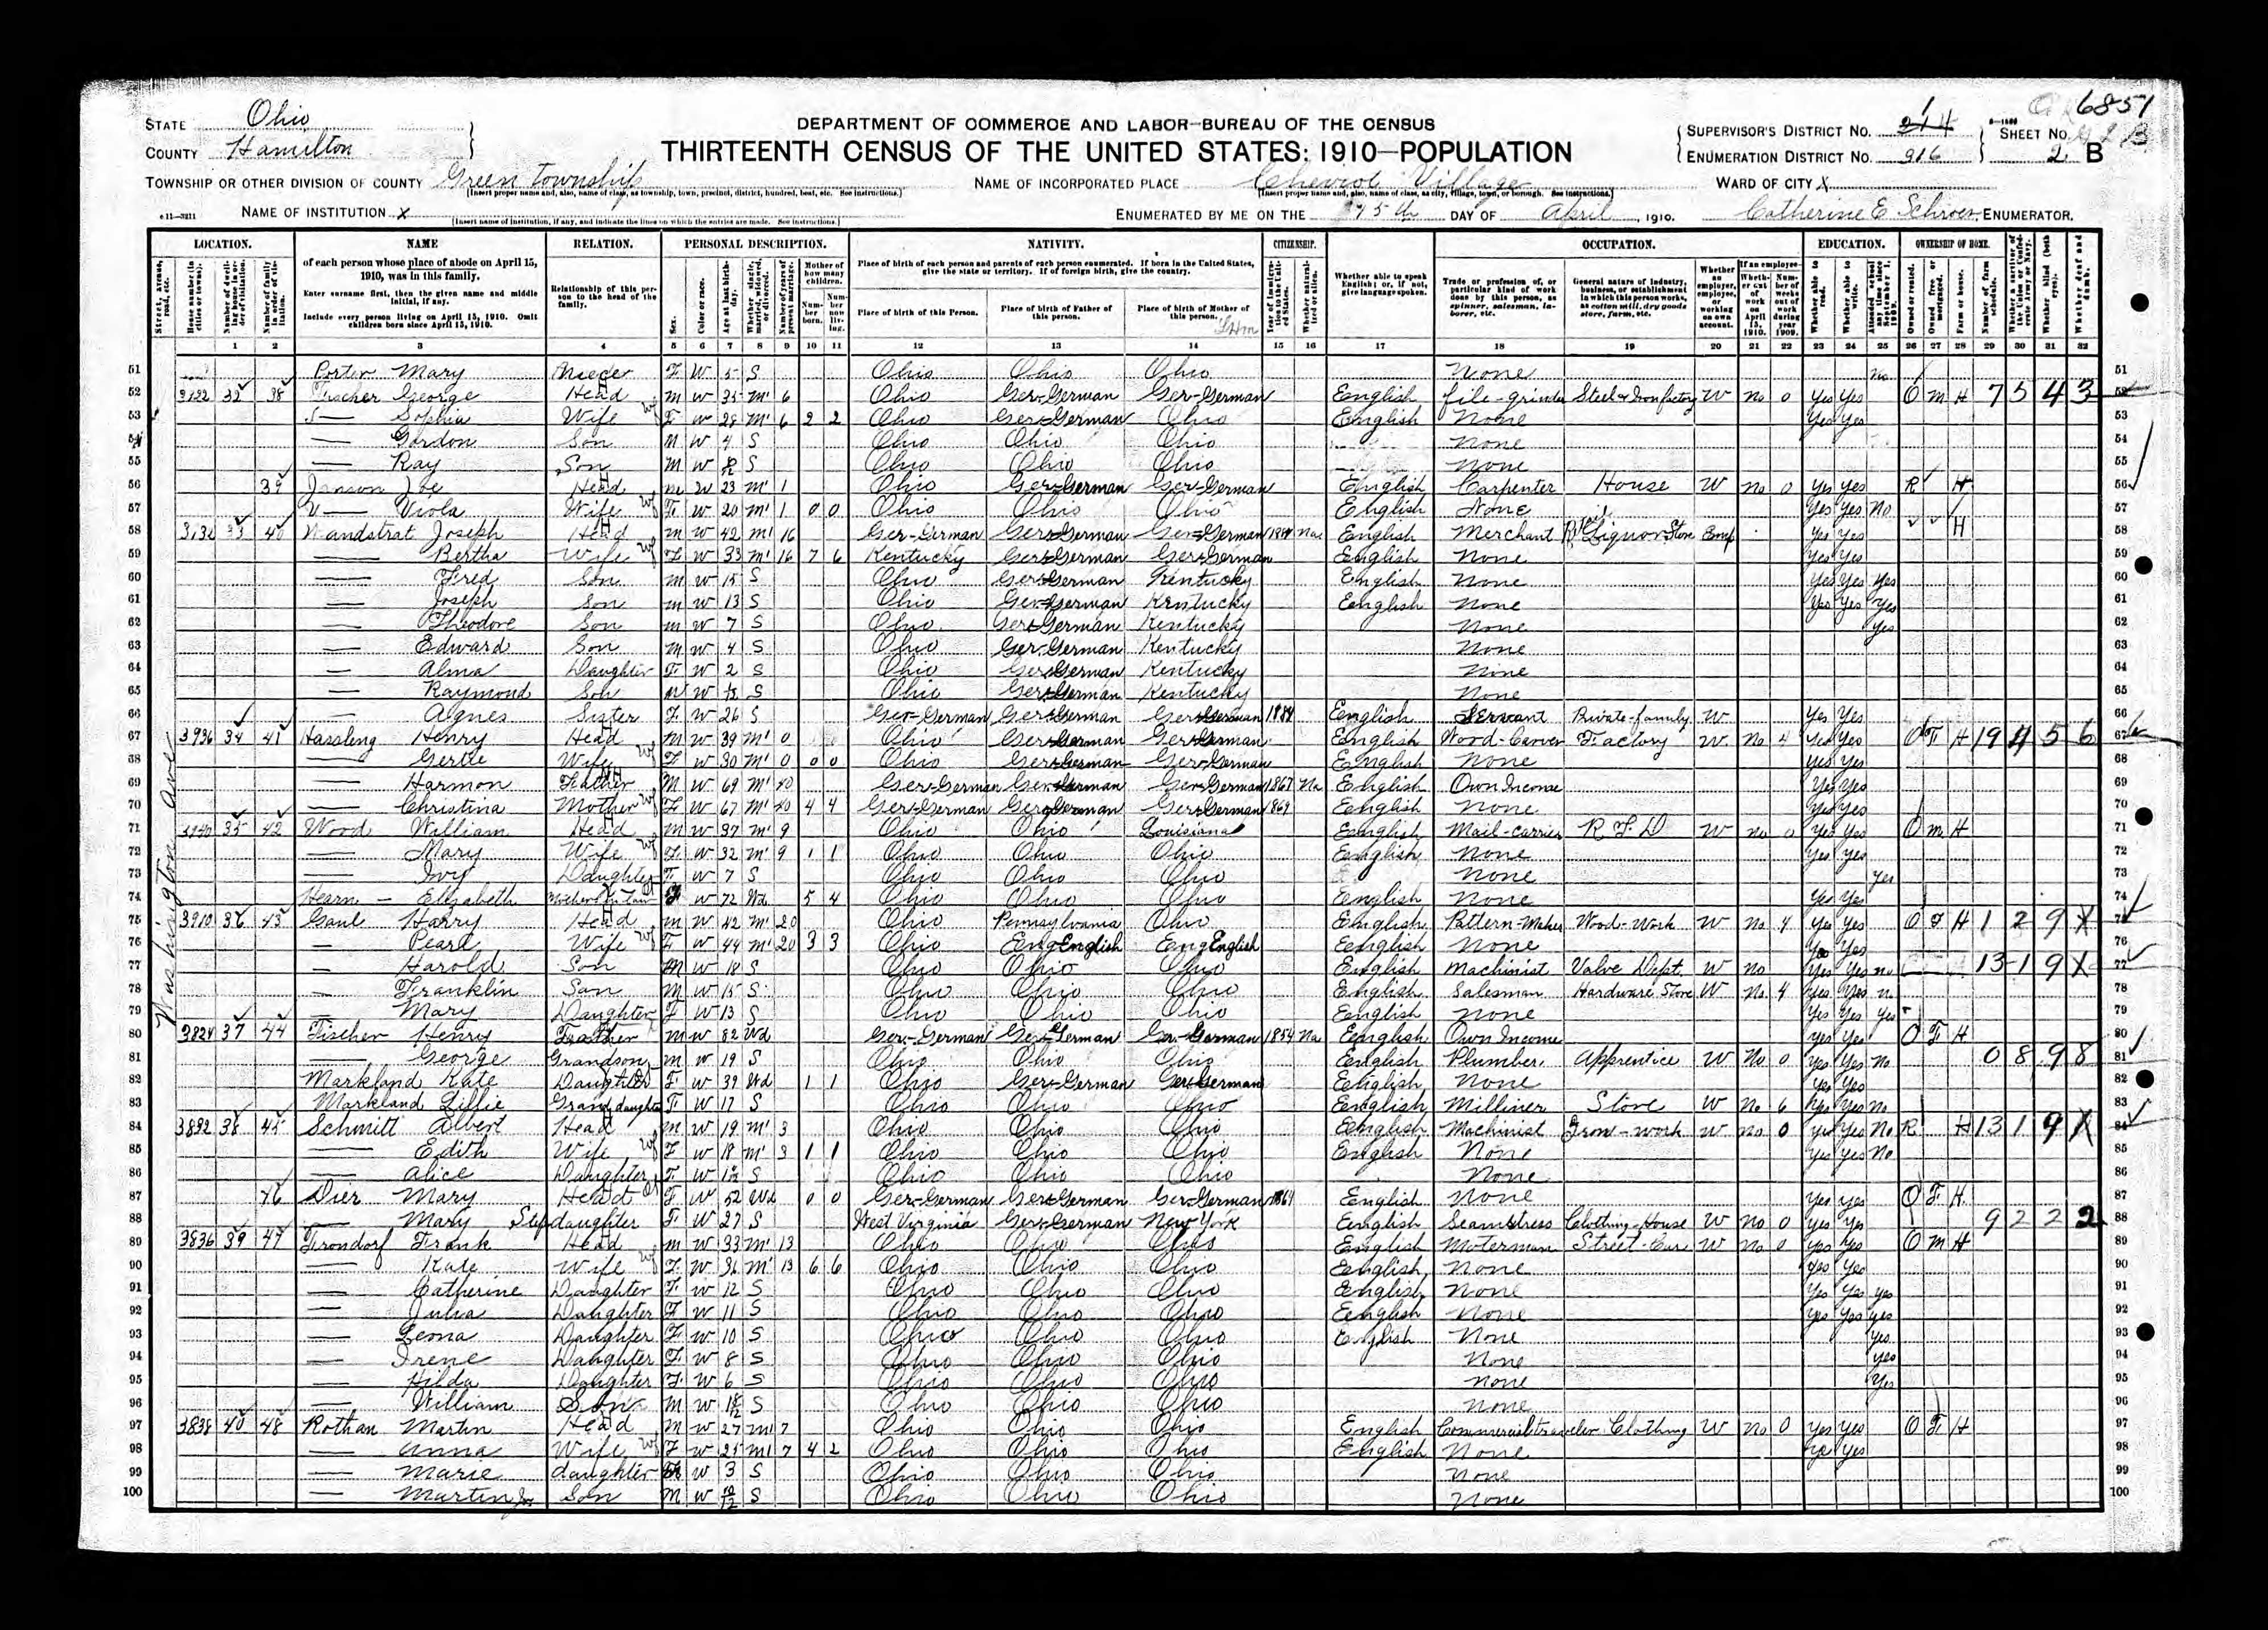 6851
STATE Ohio
COUNTY Hamilton
DEPARTMENT OF COMMERCE AND LABOR—BUREAU OF THE CENSUS
THIRTEENTH CENSUS OF THE UNITED STATES: 1910—POPULATION
SUPERVISOR'S DISTRICT No. 1
ENUMERATION DISTRICT No. 916
SHEET No. 2 B
TOWNSHIP OR OTHER DIVISION OF COUNTY Green township
NAME OF INCORPORATED PLACE Cheviot Village
WARD OF CITY X
NAME OF INSTITUTION X
ENUMERATED BY ME ON THE DAY OF April, 1910. Catherine E ENUMERATOR.
LOCATION. NAME RELATION. PERSONAL DESCRIPTION. NATIVITY. CITIZENSHIP. OCCUPATION. EDUCATION. OWNERSHIP OF HOME.
of each person whose place of abode on April 15, 1910, was in this family.
Enter surname first, then the given name and middle initial, if any.
Include every person living on April 15, 1910. Omit children born since April 15, 1910.
Relationship of this person to the head of the family.
Place of birth of each person and parents of each person enumerated. If born in the United States, give the state or territory. If of foreign birth, give the country.
Place of birth of this Person. Place of birth of Father of this person. Place of birth of Mother of this person.
Whether able to speak English; or, if not, give language spoken.
1 2 3 4 5 6 7 8 9 10 11 12 13 14 15 16 17 18 19 20 21 22 23 24 25 26 27 28 29 30 31 32
Washington Ave
51 Porter Mary F W 5 S Ohio Ohio Ohio None no 51
52 38 Fischer George Head M W 35 M1 6 Ohio Ger-German Ger-German English file-grinder Steel & Iron factory W No 0 Yes Yes O M H 7 5 4 3
53 — Sophia Wife F W 28 M1 6 2 2 Ohio Ger-German Ohio English None Yes Yes 53
54 — Gordon Son M W 4 S Ohio Ohio Ohio None 54
55 — Ray Son M W S Ohio Ohio Ohio None 55
56 39 Janson Joe Head M W 23 M1 1 Ohio Ger-German Ger-German English Carpenter House W No 0 Yes Yes R H 56
57 — Viola Wife F W 20 M1 1 0 0 Ohio Ohio Ohio English None Yes Yes No 57
58 33 40 Wandstrat Joseph Head M W 42 M1 16 Ger-German Ger-German Ger-German Na English Merchant Liquor Store Emp Yes Yes H 58
59 — Bertha Wife F W 33 M1 16 7 6 Kentucky Ger-German Ger-German English None Yes Yes 59
60 — Fred Son M W 15 S Ohio Ger-German Kentucky English None Yes Yes Yes 60
61 — Joseph Son M W 13 S Ohio Ger-German Kentucky English None Yes Yes Yes 61
62 — Theodore Son M W 7 S Ohio Ger-German Kentucky None Yes 62
63 — Edward Son M W 4 S Ohio Ger-German Kentucky None 63
64 — Alma Daughter F W 2 S Ohio Ger-German Kentucky None 64
65 — Raymond Son M W S Ohio Ger-German Kentucky None 65
66 — Agnes Sister F W 26 S Ger-German Ger-German Ger-German 1884 English Servant Private-family W Yes Yes 66
67 3936 34 41 Hassling Henry Head M W 39 M1 0 Ohio Ger-German Ger-German English Wood-Carver Factory W No 4 Yes Yes O F H 19 4 5 6
68 — Gertie Wife F W 30 M1 0 0 0 Ohio Ger-German Ger-German English None Yes Yes 68
69 — Harmon Father M W 69 M1 40 Ger-German Ger-German Ger-German 1867 Na English Own Income Yes Yes 69
70 — Christina Mother F W 67 M1 40 4 4 Ger-German Ger-German Ger-German 1869 English None Yes Yes 70
71 3940 35 42 Wood William Head M W 37 M1 9 Ohio Ohio Louisiana English Mail-carrier R F D W no 0 Yes Yes O M H 71
72 — Mary Wife F W 32 M1 9 1 1 Ohio Ohio Ohio English None Yes Yes 72
73 — Ivy Daughter F W 7 S Ohio Ohio Ohio None Yes 73
74 Hearn — Elizabeth Mother in Law F W 72 Wd 5 4 Ohio Ohio Ohio English None Yes Yes 74
75 3910 36 43 Gaul Harry Head M W 42 M1 20 Ohio Pennsylvania Ohio English Pattern-Maker Wood-Work W No 4 Yes Yes O F H 1 2 9 X
76 — Pearl Wife F W 44 M1 20 3 3 Ohio Eng English Eng English English None Yes Yes 76
77 — Harold Son M W 18 S Ohio Ohio Ohio English Machinist Valve Dept. W No Yes Yes no 13 1 9 X 77
78 — Franklin Son M W 15 S Ohio Ohio Ohio English Salesman Hardware Store W No 4 Yes Yes 78
79 — Mary Daughter F W 13 S Ohio Ohio Ohio English None Yes Yes Yes 79
80 3824 37 44 Fischer Henry Father M W 82 Wd Ger-German Ger-German Ger-German 1854 Na English Own Income Yes Yes O F H 80
81 — George Grandson M W 19 S Ohio Ohio Ohio English Plumber Apprentice W No 0 Yes Yes No 0 8 9 8 81
82 Markland Kate Daughter F W 39 Wd 1 1 Ohio Ger-German Ger-German English None Yes Yes 82
83 Markland Lillie Grand daughter F W 17 S Ohio Ohio Ohio English Milliner Store W No 6 Yes Yes No 83
84 3892 38 45 Schmitt Albert Head M W 19 M1 3 Ohio Ohio Ohio English Machinist Iron-work W no 0 Yes Yes No R H 13 1 9 X 84
85 — Edith Wife F W 18 M1 3 1 1 Ohio Ohio Ohio English None Yes Yes No 85
86 — Alice Daughter F W S Ohio Ohio Ohio None 86
87 46 Dier Mary Head F W 52 Wd 0 0 Ger-German Ger-German Ger-German 1864 English None Yes Yes O F H 87
88 — Mary Stepdaughter F W 27 S West Virginia Ger-German New York English Seamstress Clothing-House W No 0 Yes Yes 9 2 2 2 88
89 3836 39 47 Trondorf Frank Head M W 33 M1 13 Ohio Ohio Ohio English Moterman Street-Car W No 0 Yes Yes O M H 89
90 — Kate Wife F W 36 M1 13 6 6 Ohio Ohio Ohio English None Yes Yes 90
91 — Catherine Daughter F W 12 S Ohio Ohio Ohio English None Yes Yes Yes 91
92 — Julia Daughter F W 11 S Ohio Ohio Ohio English None Yes Yes Yes 92
93 — Leona Daughter F W 10 S Ohio Ohio Ohio English None Yes 93
94 — Irene Daughter F W 8 S Ohio Ohio Ohio None Yes 94
95 — Hilda Daughter F W 6 S Ohio Ohio Ohio None Yes 95
96 — William Son M W S Ohio Ohio Ohio None 96
97 3838 40 48 Rothan Martin Head M W 27 M1 7 Ohio Ohio Ohio English Commercial traveler Clothing W No 0 Yes Yes O F H 97
98 — Anna Wife F W 25 M1 7 4 2 Ohio Ohio Ohio English None Yes Yes 98
99 — Marie daughter F W 3 S Ohio Ohio Ohio None 99
100 — Martin Jr. Son M W S Ohio Ohio Ohio None 100